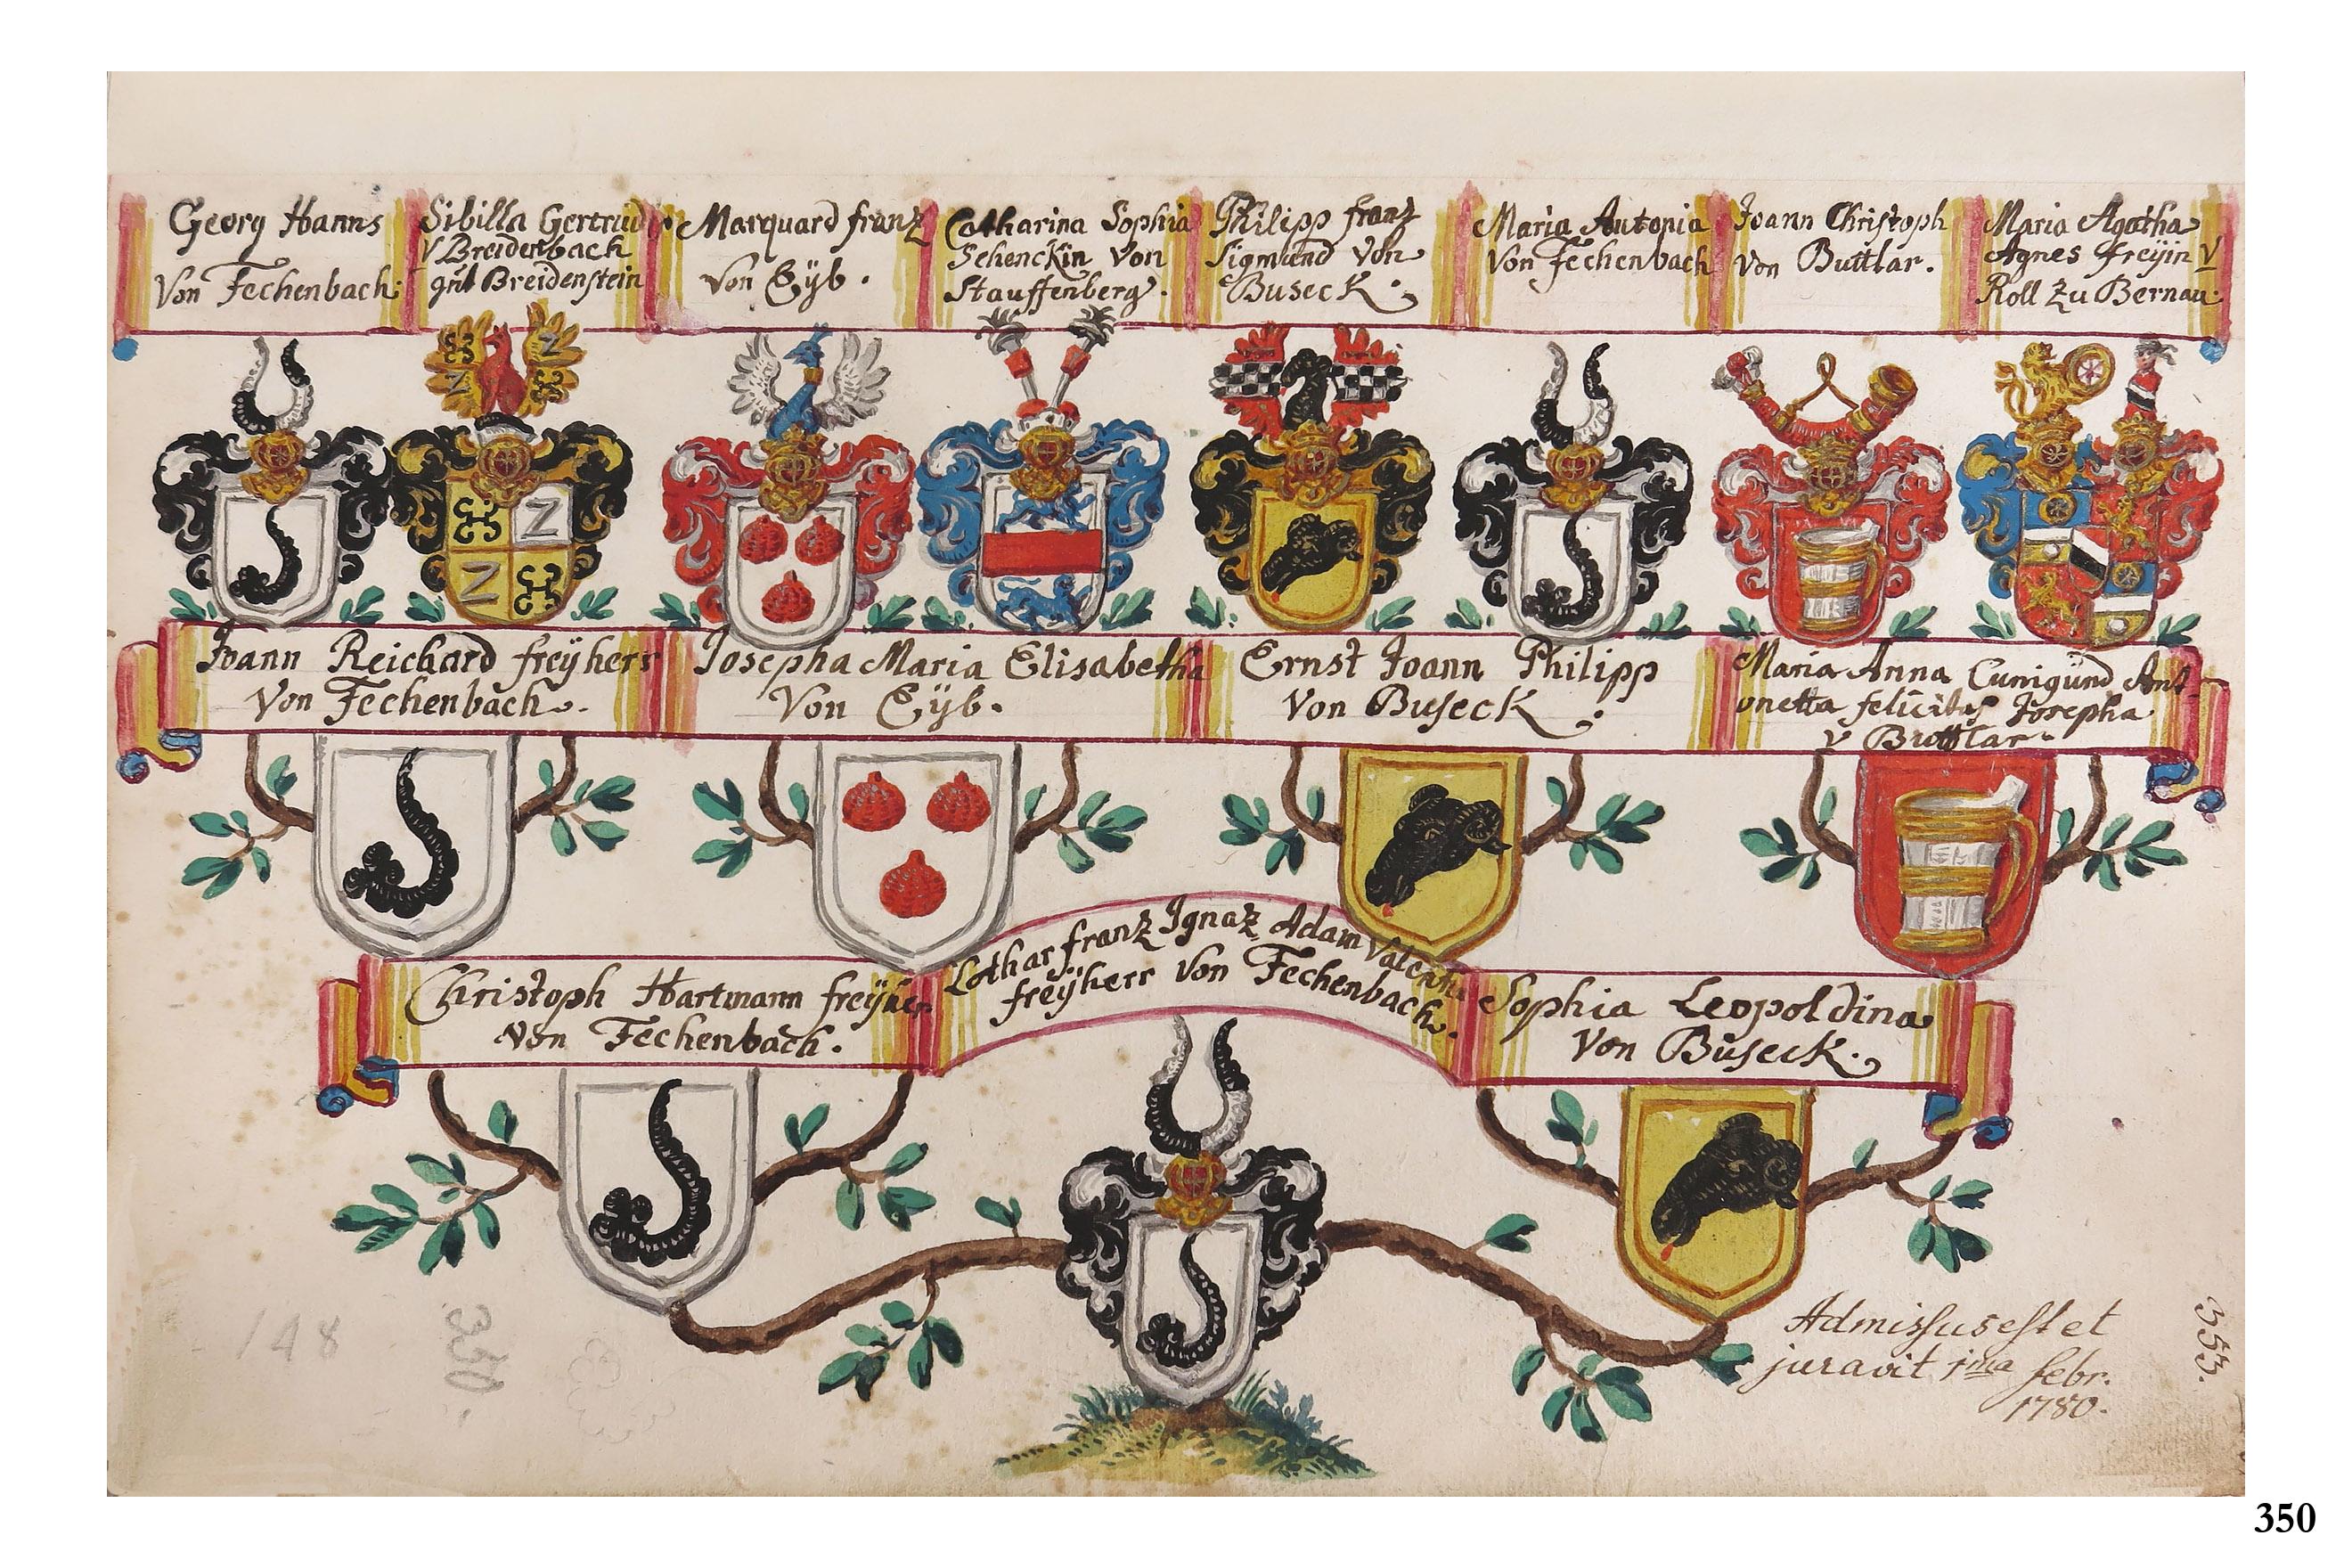 Georg Hanns
Von Fechenbach.
Sibilla Gertrud
V Breidenbach
gnt Breidenstein
Marquard franz
von Eÿb.
Catharina Sophia
Schenckin von
Stauffenberg.
Philipp franz
Sigmund von
Buseck.
Maria Antonia
Von Fechenbach
Joann Christoph
von Buttlar.
Maria Agatha
Agnes freÿin V
Roll zu Bernau.
Joann Reichard freÿherr
Von Fechenbach.
Josepha Maria Elisabetha
Von Eÿb.
Ernst Joann Philipp
Von Buseck.
Maria Anna Cunigund Ant-
onetta felicitas Josepha
v Buttlar.
Christoph Hartmann freÿherr
von Fechenbach.
Lothar franz Ignaz Adam Valentin
freÿherr Von Fechenbach.
Sophia Leopoldina
Von Buseck.
Admissus est et
juravit 1ma febr.
1780.
148
350.
353.
350